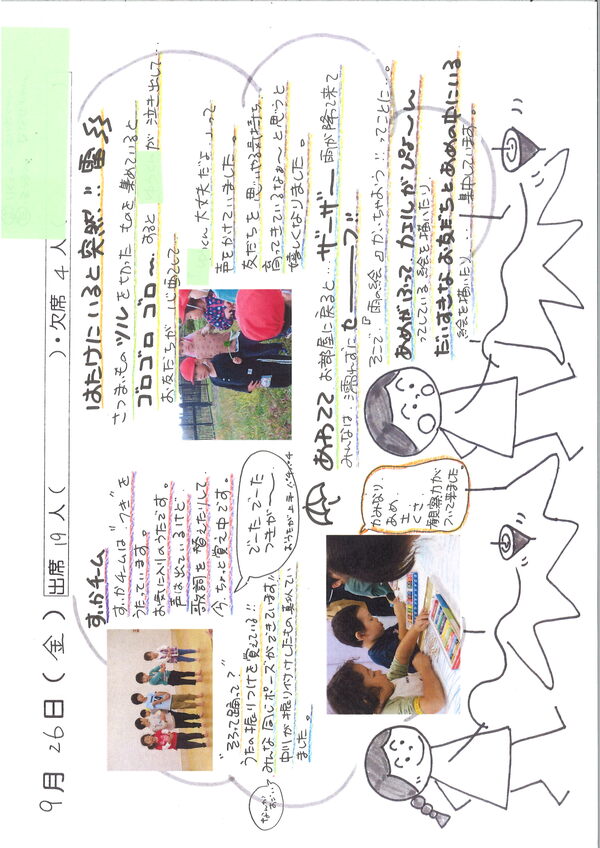 9月26日(金) 出席 19人( )・欠席 4人(
すいかチーム
すいかチームは"つき"を
うたっています。
お気に入りのうたです。
声は出ているけど、
歌詞を替えたりして、
今ちょっと覚え中です。
でーたでーた
つきが〜
おうたが上手♪パチパチ
"そろって踊って?"
うたの振りつけを覚えている!!
みんな同じポーズができています!!
中川が振り付けしたもの真似てい
ました。
かみなり、
あめ、
土、
くさ
観察力が
ついて来ました。
はたけにいると突然!!雷
さつまいものツルを切ったものを集めていると
ゴロゴロ ゴロ〜 すると が泣き出して…
お友だちが心配をして…
くん大丈夫だよ…って
声をかけていました。
友だちを思いやる気持ち、
育ってきているなぁ〜と思うと
嬉しくなりました。
あわててお部屋に戻ると…ザーザー雨が降って来て
みんなは濡れずにセーーーフ!!
そこで『雨の絵』かいちゃおう!!ってことに…。
あめがふって カエルがぴょ〜ん
ってしている絵を描いたり
だいすきなお友だちとあめの中にいる
絵を描いたり… 集中しています。